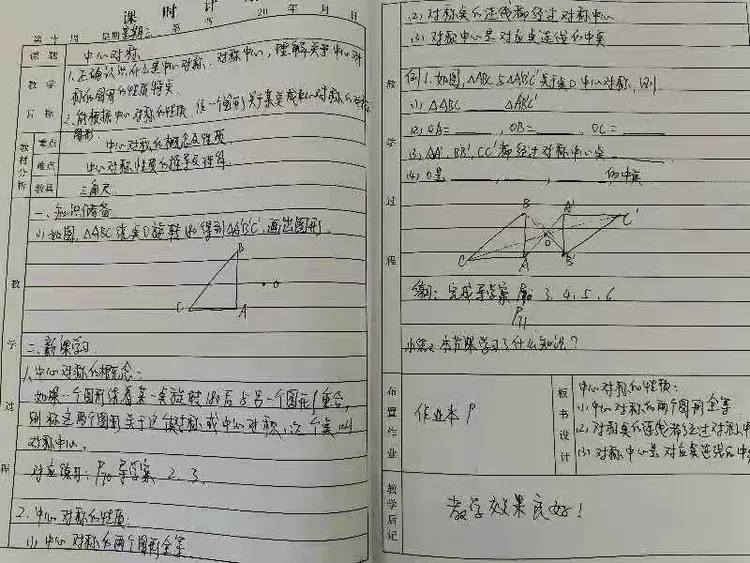 课时计
第十周 星期三 第 节 20 年 月 日
课题 中心对称
教学目标
1.正确认识什么是中心对称、对称中心,理解关于中心对
称的图形的性质特点
2.能根据中心对称的性质,作一个图形关于某点成中心对称的对称
图形.
教材分析
重点 中心对称的概念及性质
难点 中心对称性质的推导及理解.
教具 三角尺.
教学过程
一、知识储备
(1)如图,△ABC绕点O旋转180°得到△A'B'C',画出图形.
B
O
C A
二、新课学习
1.中心对称的概念:
如果一个图形绕着某一点旋转180°后与另一个图形重合,
则称这两个图形关于这点对称或中心对称,这个点叫
对称中心.
对应练习:P70 导学案 2.3.
2.中心对称的性质:
(1)中心对称的两个图形全等
教学过程
(2)对称点的连线都经过对称中心
(3)对称中心是对应点连线的中点
例1.如图,△ABC与△A'B'C'关于点O中心对称,则
(1)△ABC △A'B'C'
(2)OA=____,OB=____,OC=____
(3)AA',BB',CC'都经过对称中心点____
(4)O是____,____,____的中点
B A' C'
O
C A B'
练习:完成导学案 P70 3、4、5、6
P71
小结:本节课学习了什么知识?
布置作业
作业本P
板书设计
中心对称的性质:
(1)中心对称的两个图形全等
(2)对称点的连线都经过对称中
(3)对称中心是对应点连线的中
教学后记
教学效果良好!